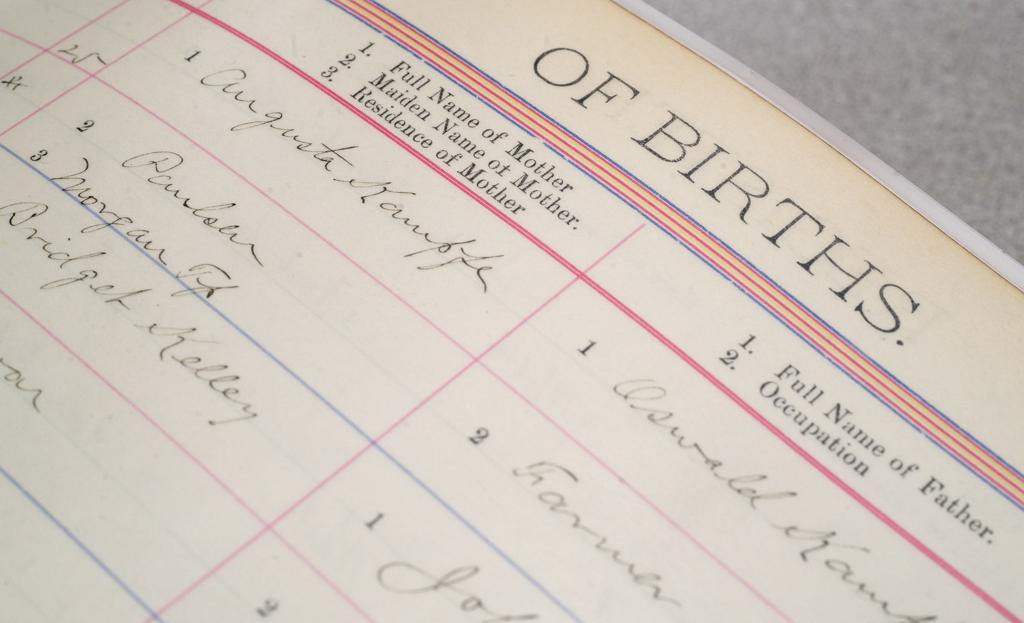 OF BIRTHS.
1. Full Name of Mother
2. Maiden Name of Mother.
3. Residence of Mother
1. Full Name of Father.
2. Occupation
1 Augusta Kampffe
2 Paulsen
3 Morgan Tp
1 Oswald Kampf
2 Farmer
Bridget Kelley
1 Joh
2